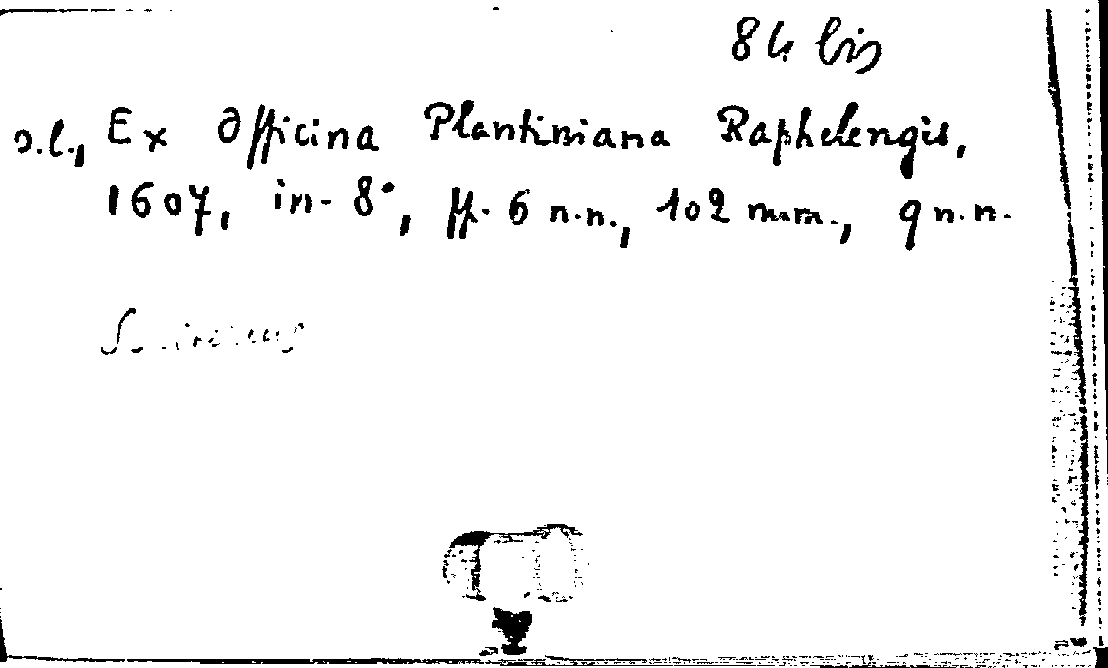 84 bis
s.l., Ex Officina Plantiniana Raphelengis,
1607, in-8°, ff. 6 n.n., 102 mm., 9 n.n.